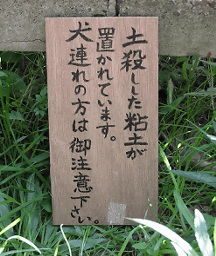 土殺しした粘土が
置かれています。
犬連れの方は御注意下さい。